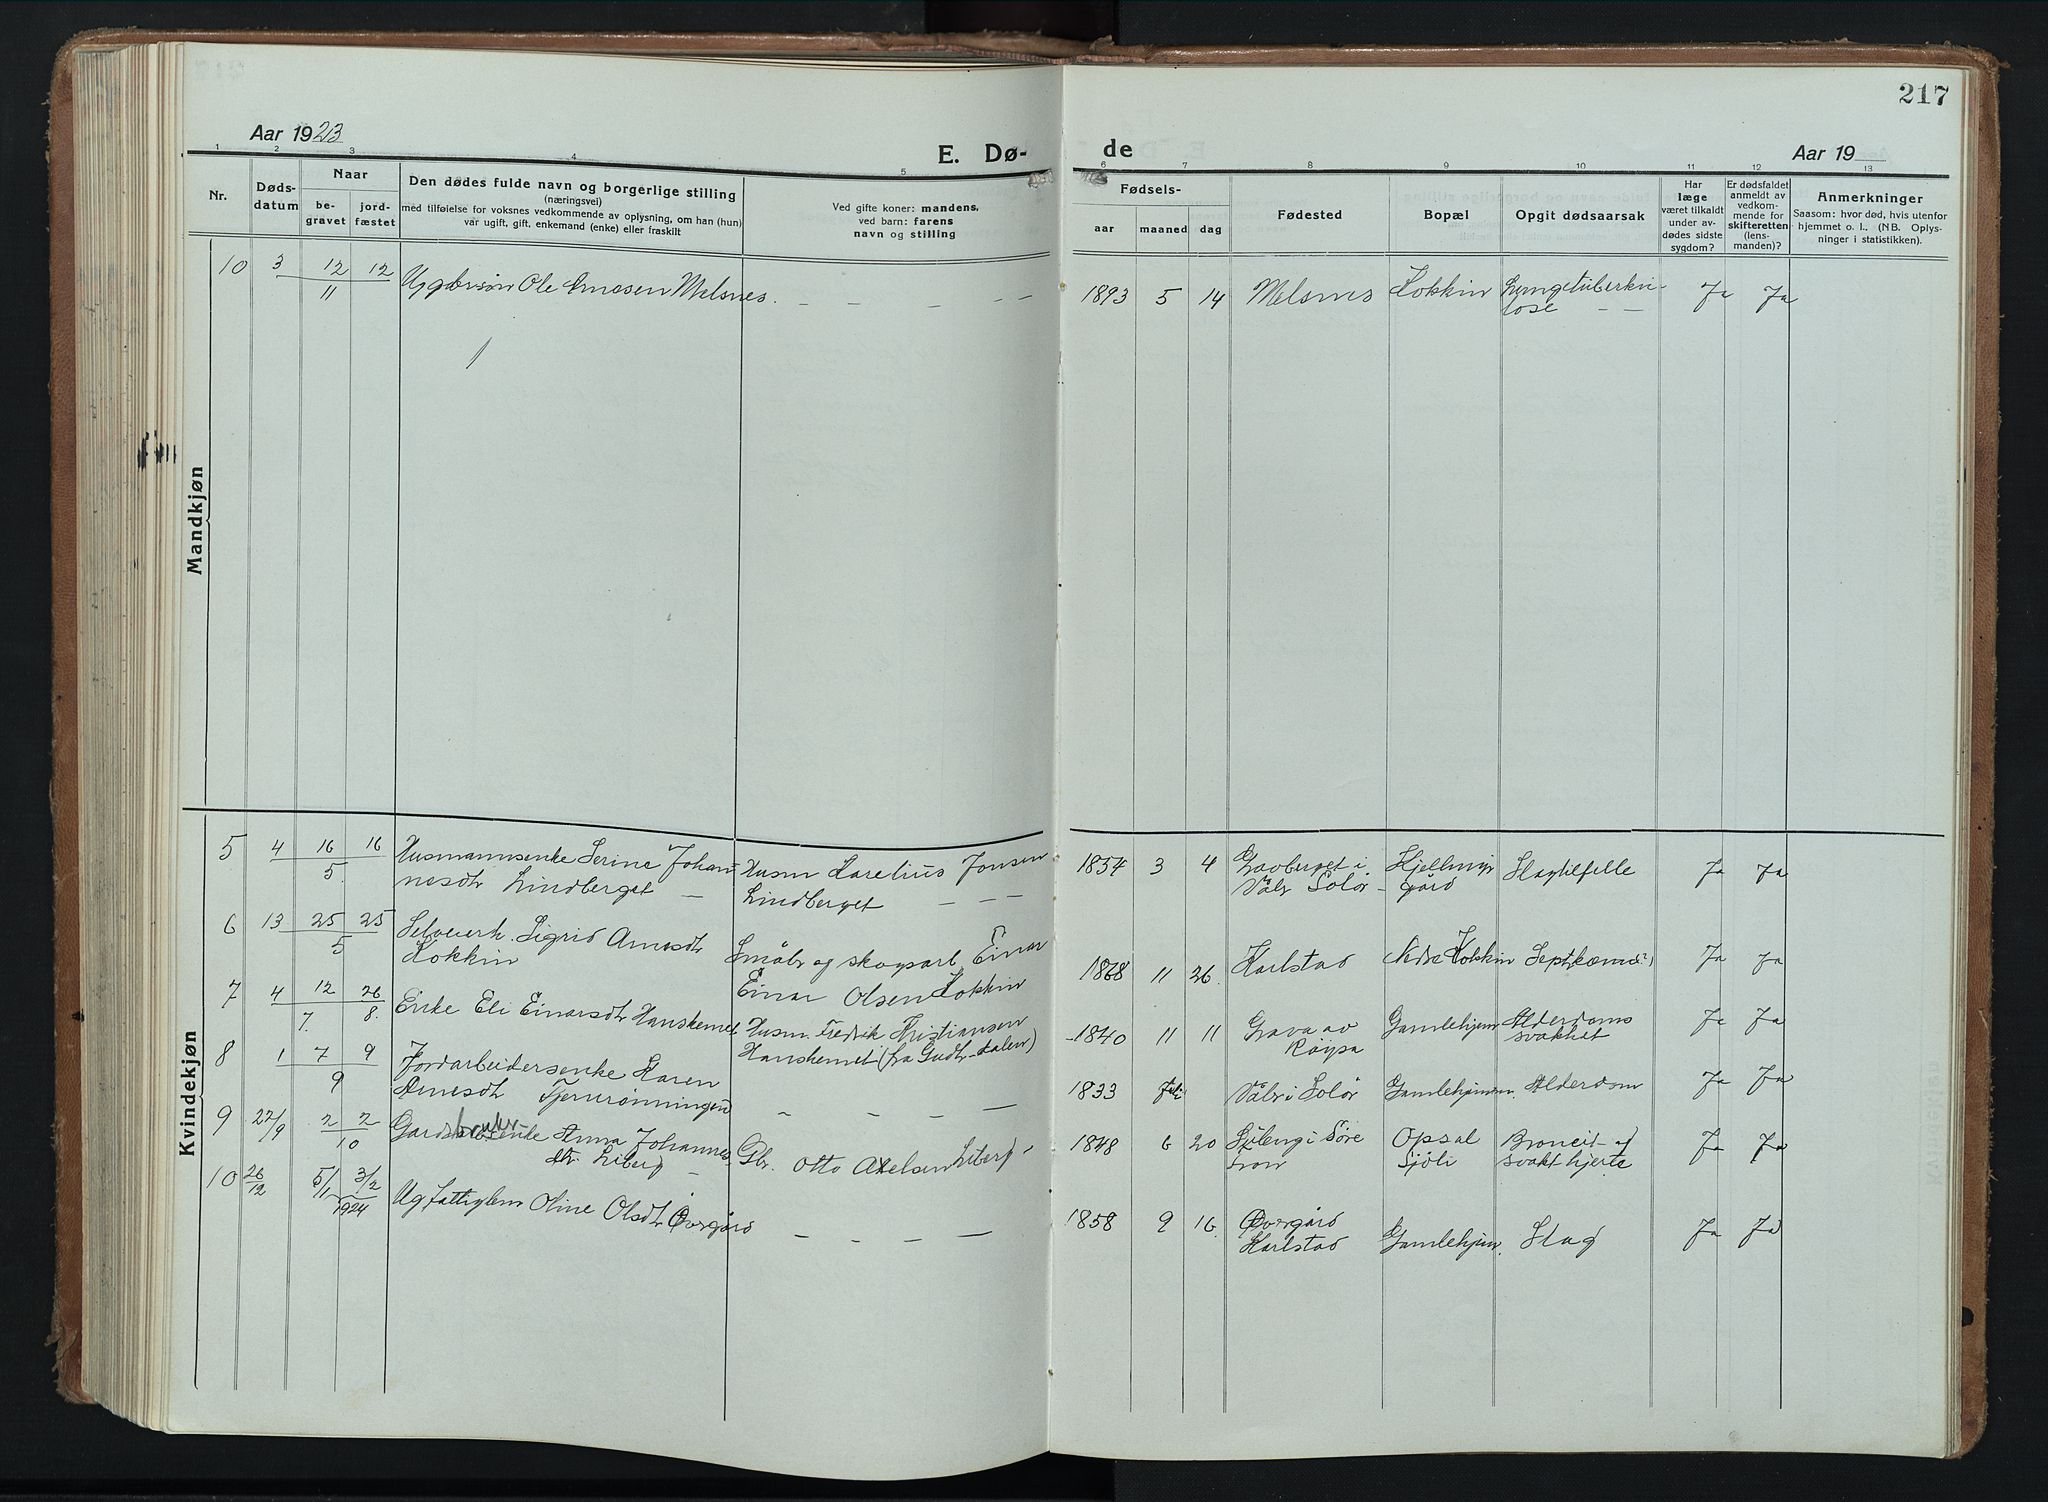 217
Aar 1923
E. Dø-
de
Aar 19
1 2 3 4 5 6 7 8 9 10 11 12 13
Nr.
Døds-
datum
Naar
be-
gravet
jord-
fæstet
Den dødes fulde navn og borgerlige stilling
(næringsvei)
med tilføielse for voksnes vedkommende av oplysning, om han (hun)
var ugift, gift, enkemand (enke) eller fraskilt
Ved gifte koner: mandens,
ved barn: farens
navn og stilling
Fødsels-
aar
maaned
dag
Fødested
Bopæl
Opgit dødsaarsak
Har
læge
været tilkaldt
under av-
dødes sidste
sygdom?
Er dødsfaldet
anmeldt av
vedkom-
mende for
skifteretten
(lens-
manden)?
Anmerkninger
Saasom: hvor død, hvis utenfor
hjemmet o. l.. (NB. Oplys-
ninger i statistikken).
Mandkjøn
10 3 12 12
11
Ole Melsnes. – – – – –
1893 5 14 Melsnes Kokkin Lungetuberku-
lose – –
Ja Ja
Kvindekjøn
5 4 16 16
5.
Husmannsenke Serine Johan-
nesdtr Lindberget –
Husm Karelius Jonsen
Lindberget – – –
1854 3 4 i
Våler Solør – Slagtilfelle
gård
Ja Ja
6 13 25 25
5
Sigrid Arnesdtr
Kokkin
Småbr og skogsarb. Einar
1868 11 26. Karlstad Nedre Kokkin
Ja Ja
7 4 12 26
7. 8.
Enke Eli Einarsdtr Hanskemet
Einar Olsen Kokkin
Husm. Fredrik Kristiansen
Hanskemet (fra Gudbr-dalen)
1840 11 11 Grava av
Gamlehjem Alderdoms
svakhet
Ja Ja
8 1 7 9
9
Jordarbeidersenke Karen
Arnesdtr
– – – –
1833 Våler i Solør Gamlehjemmen. Alderdom
Ja Ja
9 22/9 2 2
10
Anna Johannes-
dtr. Liberg –
Gbr. Otto Axelsen Liberg
1848 6 20 i Søre
Opsal
Sjøli
svakt hjerte
Ja Ja
10 26/12 5/1 3/2
1924
Ug. fattiglem Oline Olsdtr Øvergård
– – – –
1858 9 16. Øvergård
Karlstad Gamlehjem. Slag
Ja Ja